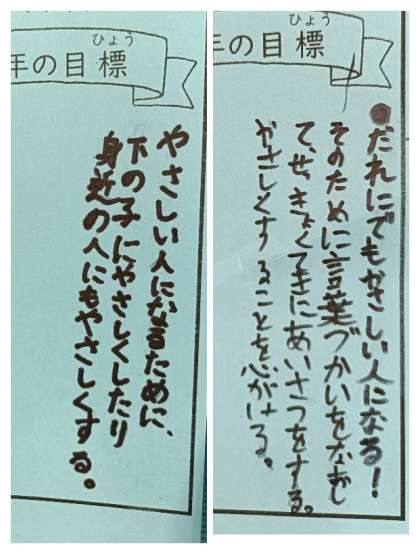 ひょう
年の目標
やさしい人になるために、
下の子にやさしくしたり
身近の人にもやさしくする。
ひょう
年の目標
●だれにでもやさしい人になる！
そのために言葉づかいをなおし
て、せっきょくてきにあいさつをする。
やさしくすることを心がける。